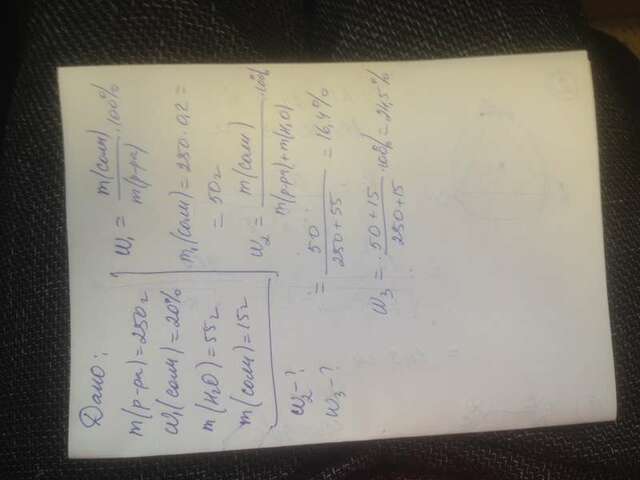 Дано:
m(р-ра)=250г
ω₁(соли)=20%
m(H₂O)=55г
m(соли)=15г
ω₂-?
ω₃-?
ω₁ = m(соли) / m(р-ра) · 100%
m₁(соли)=250·0,2=
=50г
ω₂ = m(соли) / m(р-ра)+m(H₂O) · 100%
= 50 / 250+55 = 16,4%
ω₃ = 50+15 / 250+15 · 100% = 24,5%